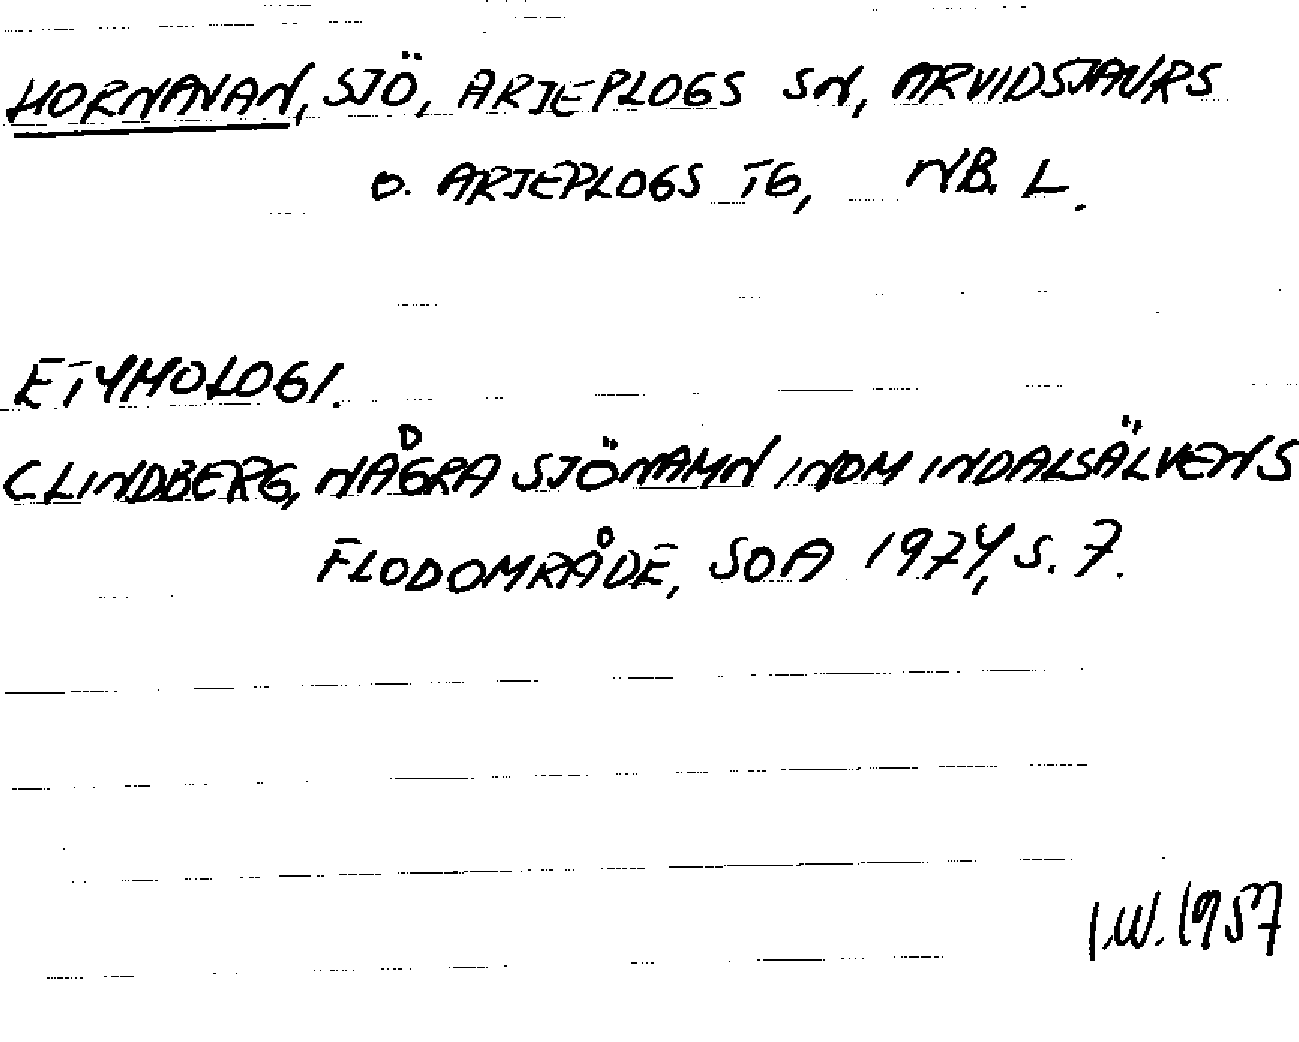 HORNAVAN, SJÖ, ARJEPLOGS SN, ARVIDSJAURS
O. ARJEPLOGS TG, NB. L.
ETYMOLOGI.
C LINDBERG, NÅGRA SJÖNAMN INOM INDALSÄLVENS
FLODOMRÅDE, SOA 1974, S. 7.
I.W. 1957